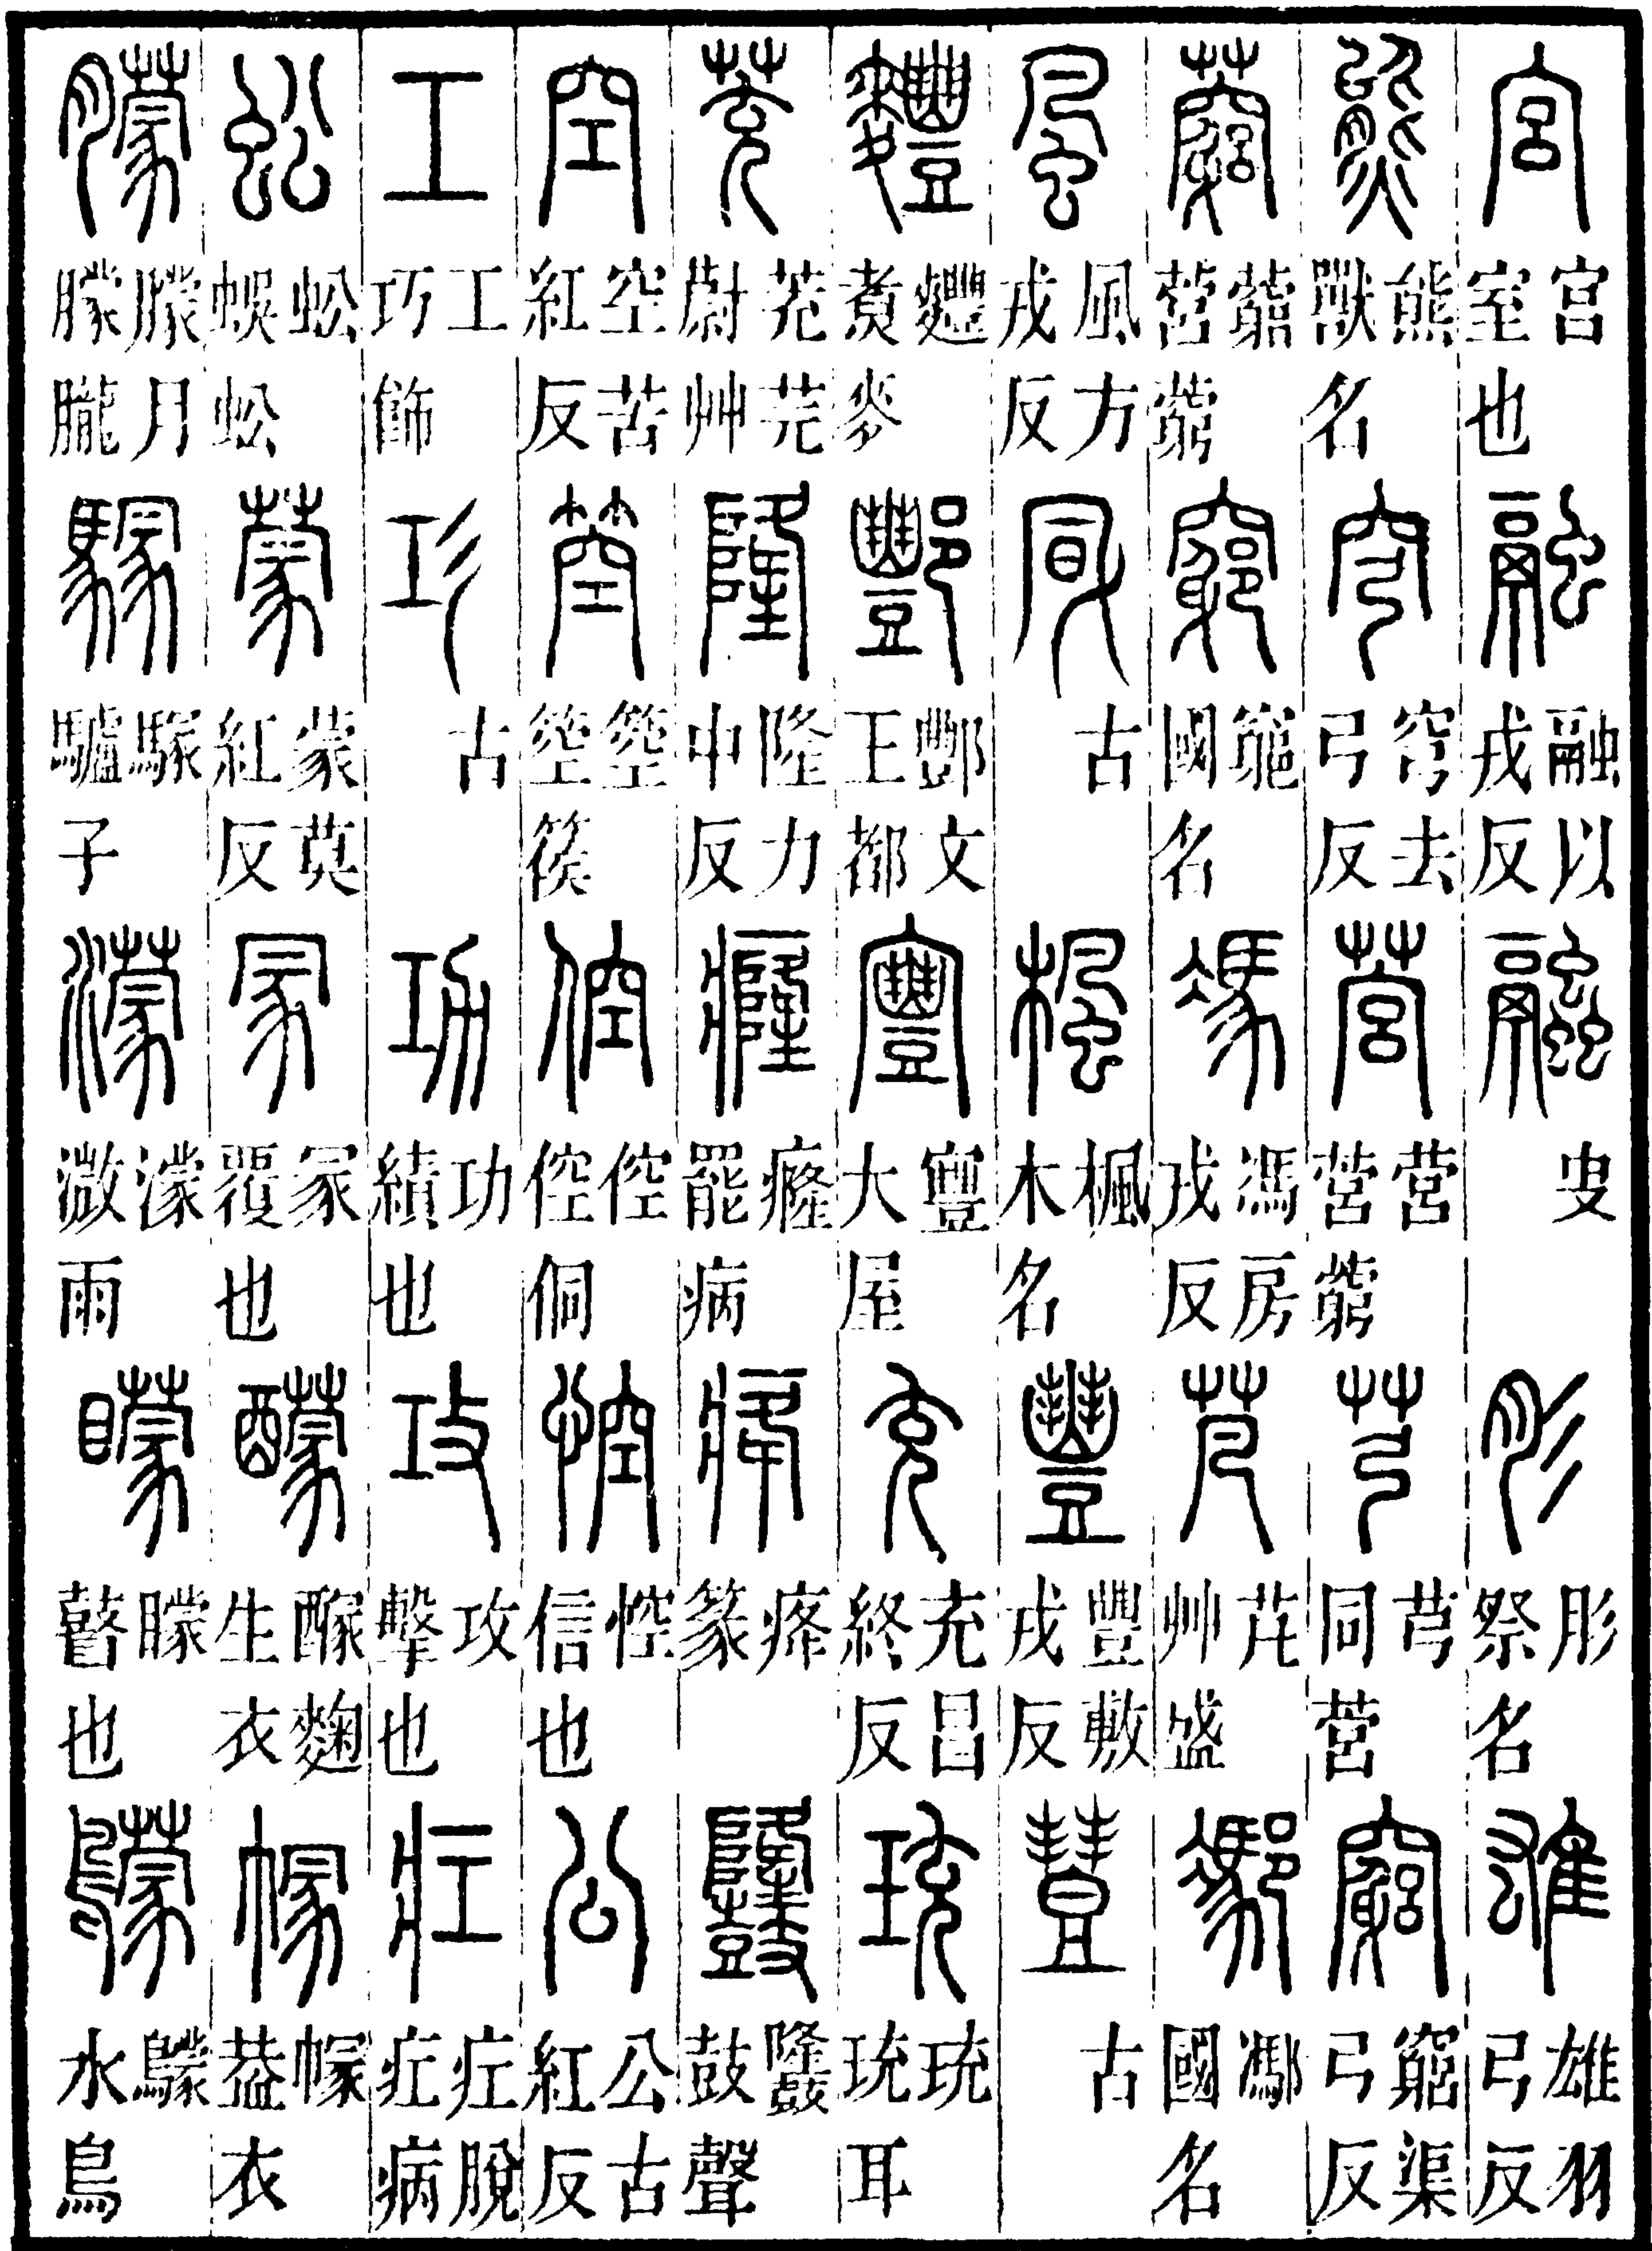 宮宮室也融融以戎反融㕜肜肜祭名雄雄羽弓反
熊熊獸名穹穹去弓反营营营藭芎芎同营竆竆渠弓反
藭藭营藭竆竆國名馮馮房戎反芃芃艸盛國名
風風方戎反古楓楓木名豐豐敷戎反古
麷麷煑麥酆酆文王都寷寷大屋充充昌終反珫珫珫耳
茺茺芫蔚艸隆隆力中反癃癃罷病篆鼓聲
空空苦紅反箜箜箜篌倥倥倥侗悾悾信也公公古紅反
工工巧飾古功功績也攻攻擊也疘疘脫疘病
蚣蚣蜈蚣蒙蒙莫紅反冡冡覆也麴生衣幏幏葢衣
朦朦月朦朧驢子濛濛溦雨矇矇瞽也鸏鸏水鳥